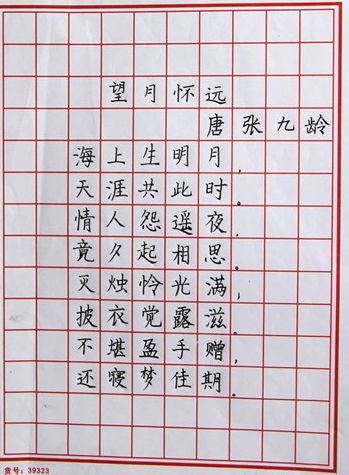 望月怀远
唐张九龄
海上生明月，
天涯共此时。
情人怨遥夜，
竟夕起相思。
灭烛怜光满，
披衣觉露滋。
不堪盈手赠，
还寝梦佳期。
货号：39323